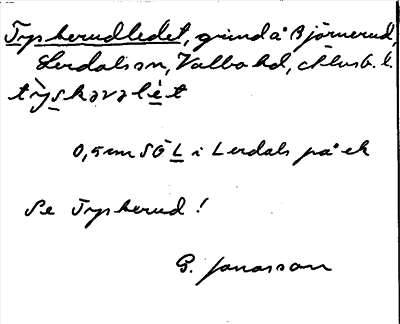 Tyskerudledet, grind å Björnerud,
Lerdals sn, Valbo hd, Älvsb. l.
tỳskərəlèt
0,5 cm SÖ L i Lerdals på ek
Se Tyskerud!
G. Jonasson